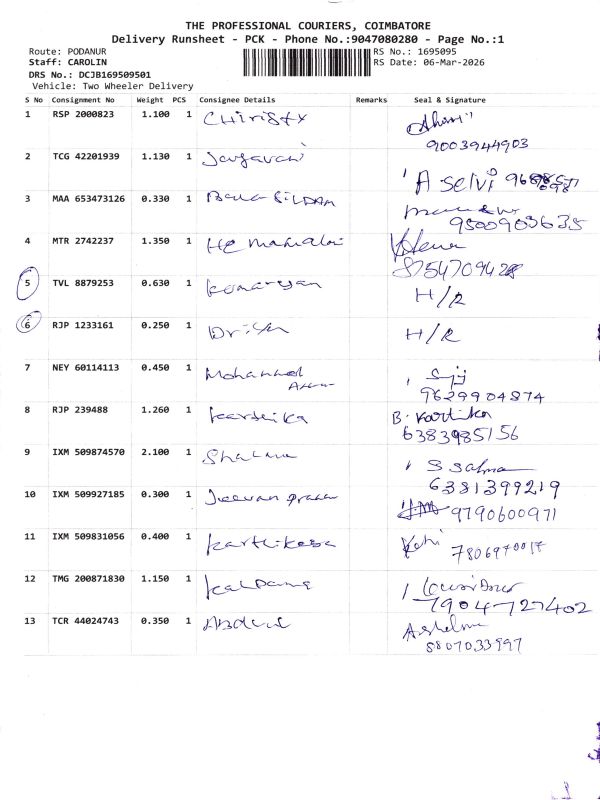 THE PROFESSIONAL COURIERS, COIMBATORE
Delivery Runsheet - PCK - Phone No.:9047080280 - Page No.:1
Route: PODANUR RS No.: 1695095
Staff: CAROLIN RS Date: 06-Mar-2026
DRS No.: DCJB169509501
Vehicle: Two Wheeler Delivery
S No Consignment No Weight PCS Consignee Details Remarks Seal & Signature
1 RSP 2000823 1.100 1 Christy
9003944903
2 TCG 42201939 1.130 1
A selvi
3 MAA 653473126 0.330 1
9500903635
4 MTR 2742237 1.350 1
8754709428
5 TVL 8879253 0.630 1 H/R
6 RJP 1233161 0.250 1 H/R
7 NEY 60114113 0.450 1 Mohammed
9629904874
8 RJP 239488 1.260 1 Karthika B. Kartika
6383985156
9 IXM 509874570 2.100 1 S Salma
6381399219
10 IXM 509927185 0.300 1 9790600971
11 IXM 509831056 0.400 1
12 TMG 200871830 1.150 1 Kalpana
7904727402
13 TCR 44024743 0.350 1
8807033997